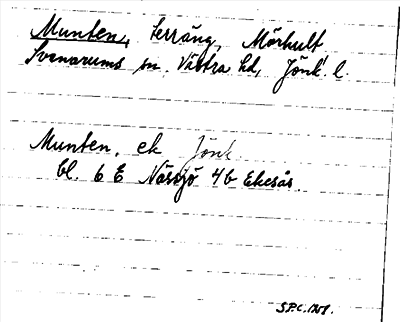 Munten, terräng, Mörhult
Svenarums sn. Västra hd, Jönk. l.
Munten. ek Jönk
bl. 6 E Nässjö 4b Ekesås